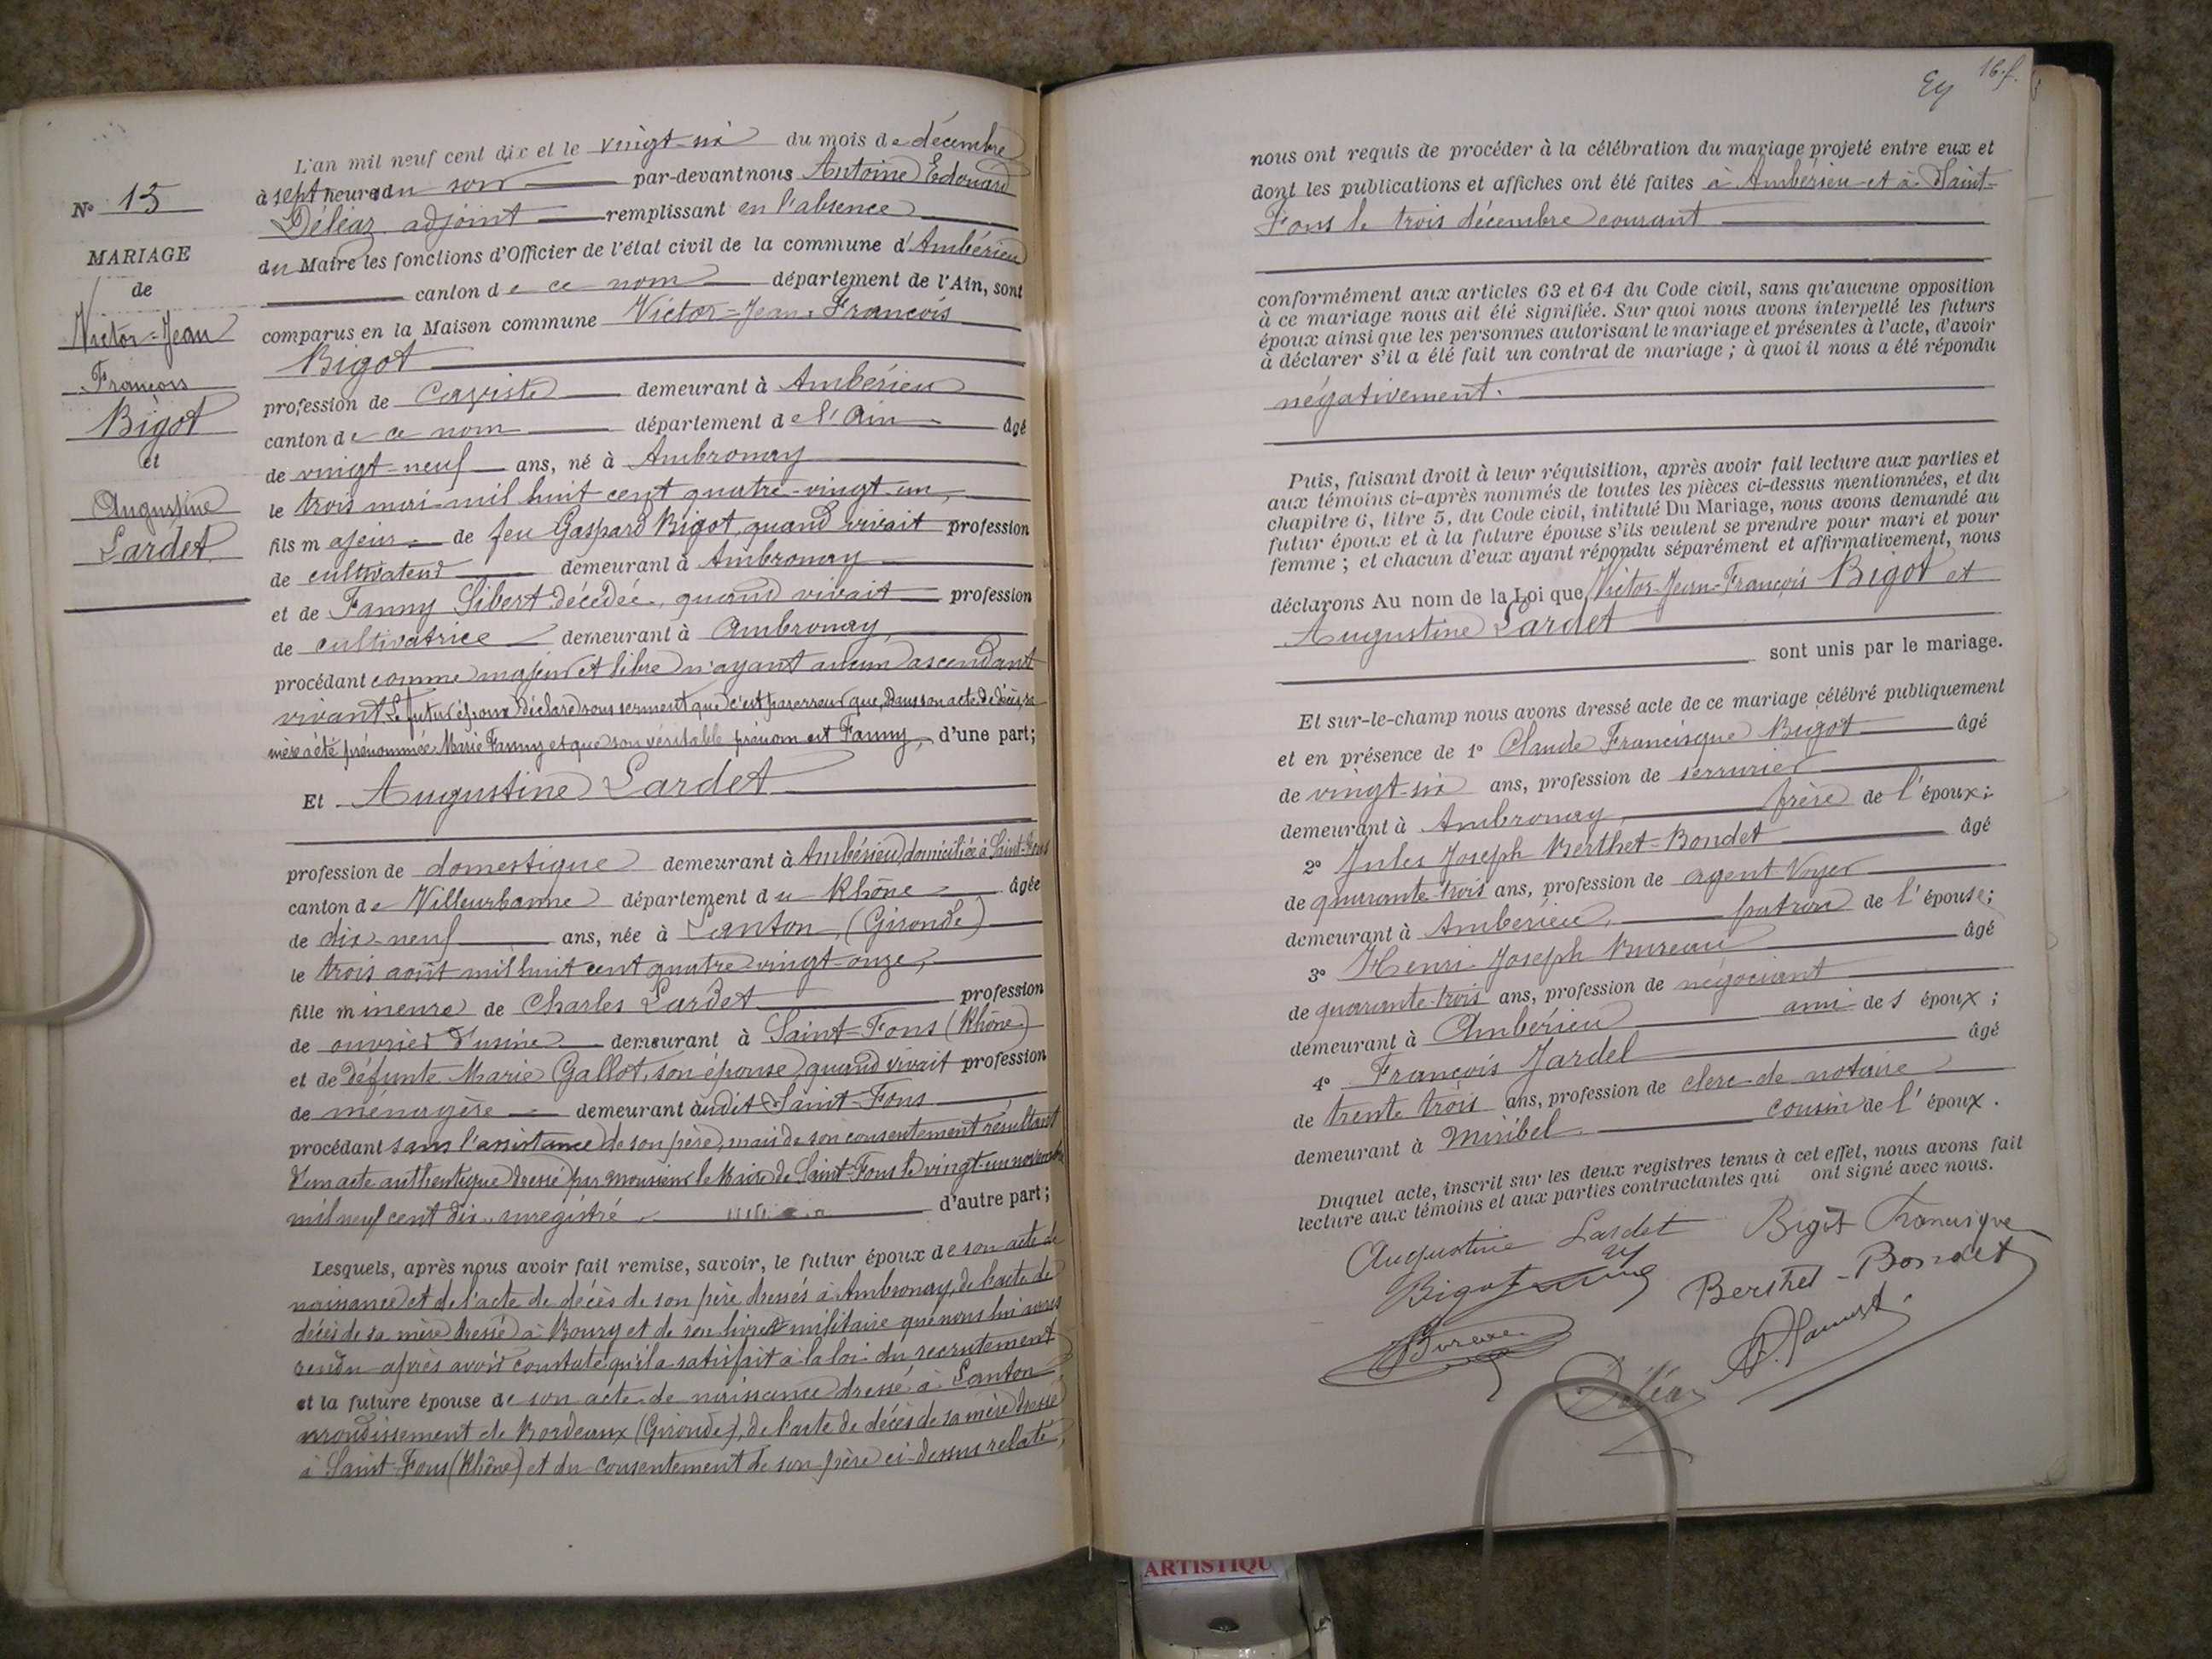 L'an mil neuf cent dix et le vingt-six du mois de décembre
à sept heures du soir par-devant nous Antoine Edouard
Déléaz adjoint remplissant en l'absence
du Maire les fonctions d'Officier de l'état civil de la commune d'Ambérieu
canton de ce nom département de l'Ain, sont
comparus en la Maison commune Victor-Jean-François
Bigot
profession de demeurant à Ambérieu
canton de ce nom département de l'Ain âgé
de vingt-neuf ans, né à Ambronay
le trois mai mil huit cent quatre-vingt-un,
fils majeur de feu Gaspard Bigot, quand vivait profession
de cultivateur demeurant à Ambronay
et de Fanny Sibert décédée, quand vivait profession
de cultivatrice demeurant à Ambronay,
procédant comme majeur et libre n'ayant aucun ascendant
vivant. Le futur époux déclare sous serment que c'est par erreur que, dans son acte de décès, sa
mère a été prénommée Marie Fanny et que son véritable prénom est Fanny, d'une part;
Et Augustine Lardet
profession de domestique demeurant à Ambérieu, domiciliée à Saint-Fons
canton de Villeurbanne département du Rhône âgée
de dix-neuf ans, née à Lanton, (Gironde)
le trois août mil huit cent quatre-vingt-onze,
fille mineure de Charles Lardet profession
de ouvrier d'usine demeurant à Saint-Fons (Rhône)
et de défunte Marie Gallot, son épouse, quand vivait profession
de ménagère demeurant audit Saint-Fons,
procédant sans l'assistance de son père, mais de son consentement résultant
d'un acte authentique dressé par monsieur le Maire de Saint-Fons le vingt-un novembre
mil neuf cent dix, enregistré d'autre part;
Lesquels, après nous avoir fait remise, savoir, le futur époux de son acte de
naissance et de l'acte de décès de son père dressés à Ambronay, de l'acte de
décès de sa mère dressé à Bourg et de son livret militaire que nous lui avons
rendu après avoir constaté qu'il a satisfait à la loi du recrutement
et la future épouse de son acte de naissance dressé à Lanton
arrondissement de Bordeaux (Gironde), de l'acte de décès de sa mère dressé
à Saint-Fons (Rhône) et du consentement de son père ci-dessus relaté,
N° 15
MARIAGE
de
Victor-Jean
François
Bigot
et
Augustine
Lardet
16. f.
nous ont requis de procéder à la célébration du mariage projeté entre eux et
dont les publications et affiches ont été faites à Ambérieu et à Saint-
Fons le trois décembre courant
conformément aux articles 63 et 64 du Code civil, sans qu'aucune opposition
à ce mariage nous ait été signifiée. Sur quoi nous avons interpellé les futurs
époux ainsi que les personnes autorisant le mariage et présentes à l'acte, d'avoir
à déclarer s'il a été fait un contrat de mariage ; à quoi il nous a été répondu
négativement.
Puis, faisant droit à leur réquisition, après avoir fait lecture aux parties et
aux témoins ci-après nommés de toutes les pièces ci-dessus mentionnées, et du
chapitre 6, titre 5, du Code civil, intitulé Du Mariage, nous avons demandé au
futur époux et à la future épouse s'ils veulent se prendre pour mari et pour
femme ; et chacun d'eux ayant répondu séparément et affirmativement, nous
déclarons Au nom de la Loi que Victor-Jean-François Bigot et
Augustine Lardet
sont unis par le mariage.
Et sur-le-champ nous avons dressé acte de ce mariage célébré publiquement
et en présence de 1° Claude Francisque Bigot âgé
de vingt-six ans, profession de serrurier
demeurant à Ambronay, frère de l'époux;
2° Jules Joseph Berthet-Bondet âgé
de quarante-trois ans, profession de agent Voyer
demeurant à Ambérieu, patron de l'épouse;
3° Henri Joseph Bureau âgé
de quarante-trois ans, profession de négociant
demeurant à Ambérieu ami des époux ;
4° François Jardel âgé
de trente trois ans, profession de clerc de notaire
demeurant à Miribel cousin de l'époux.
Duquel acte, inscrit sur les deux registres tenus à cet effet, nous avons fait
lecture aux témoins et aux parties contractantes qui ont signé avec nous.
Augustine Lardet Bigot Francisque
Bigot Berthet-Bondet
Bureau
Déléaz
ARTISTIQU